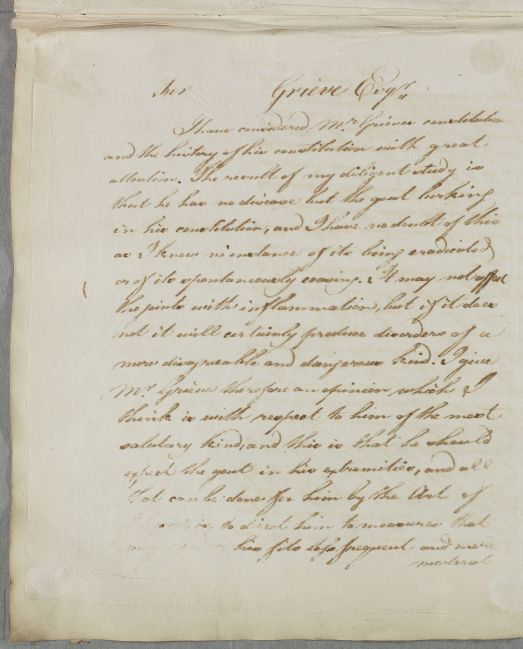 For Grieve Esqr.
I have considered Mr. Grieves constitution
and the history of his constitution with great
attention. The result of my diligent study is
that he has no disease but the gout lurking
in his constitution, and I have no doubt of this
as I know no instance of its being eradicated
or of its spontaneously ceasing. It may not affect
the joints with inflammation, but if it does
not it will certainly produce disorders of a
more disagreeable and dangerous kind. I give
Mr. Grieve therefore an opinion which I
think is with respect to him of the most
salutary kind, and this is that he should
expect the gout in his extremities, and all
that can be done for him by the Art of
to direct him to measures that
his fits less frequent and more
moderate